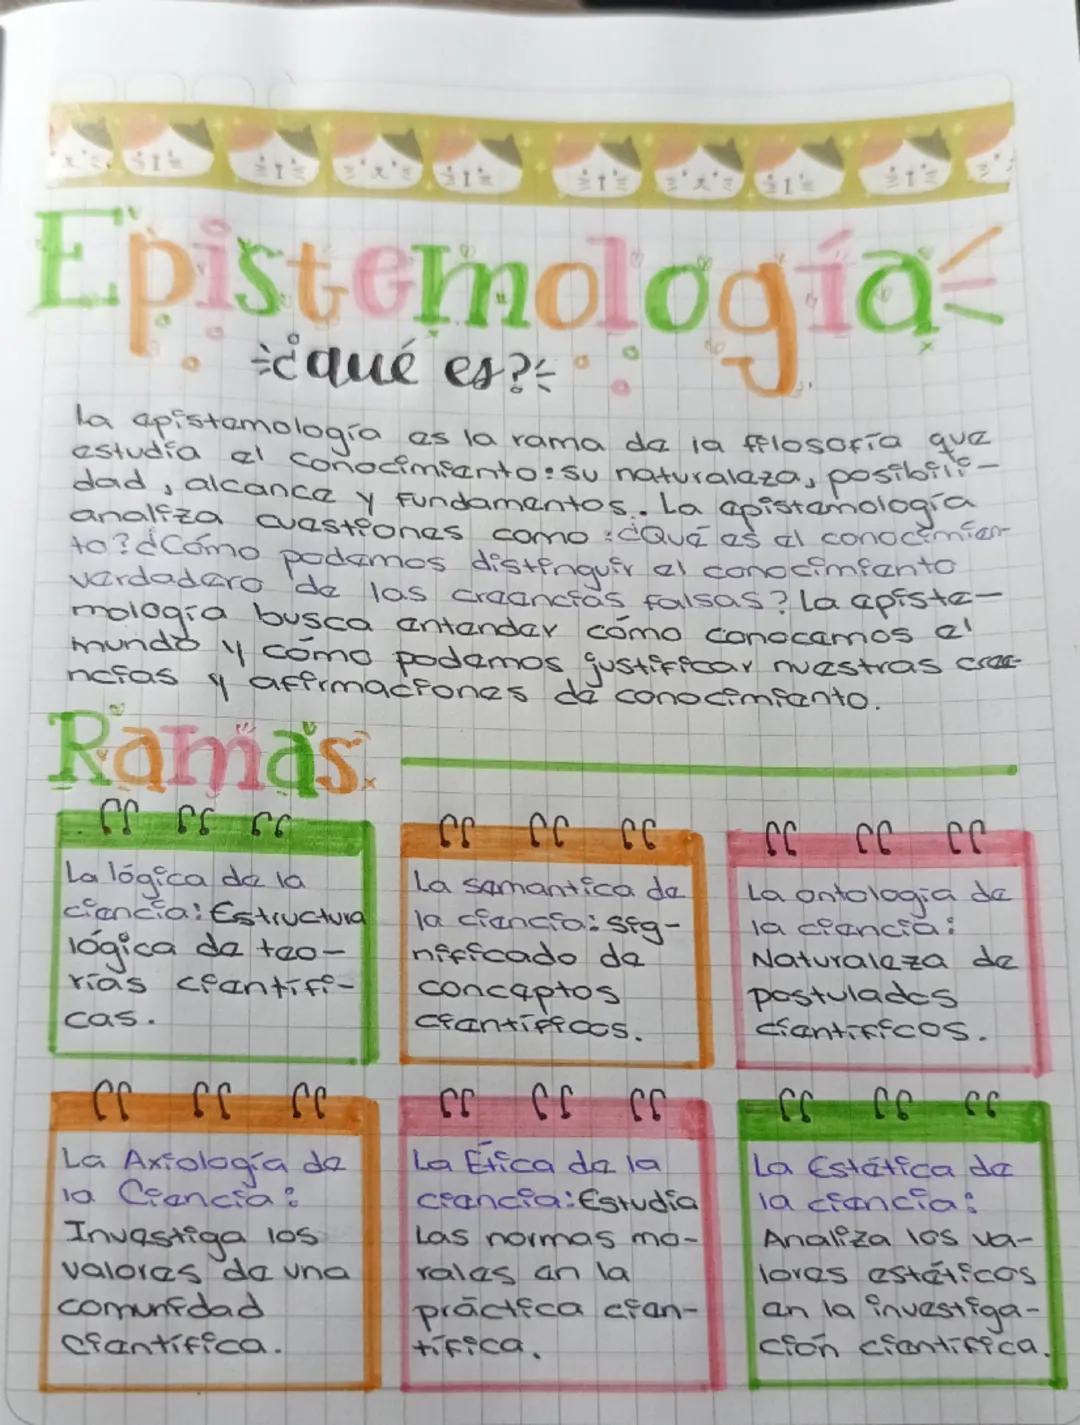 Epistemología
¿qué es?
La epistemología es la rama de la filosofía que
estudia el conocimiento: su naturaleza, posibili-
dad, alcance y fundamentos. La epistemología
analiza cuestiones como: ¿Qué es el conocimien-
to? ¿Cómo podemos distinguir el conocimiento
verdadero de las creencias falsas? La episte-
mología busca entender cómo conocemos el
mundo y cómo podemos justificar nuestras cree-
ncias y afirmaciones de conocimiento.
Ramas
La lógica de la
ciencia: Estructura
lógica de teo-
rías científi-
cas.
La semantica de
la ciencia: Sig-
nificado de
conceptos
científicos.
La ontología de
la ciencia:
Naturaleza de
postulados
científicos.
La Axiología de
la Ciencia:
Investiga los
valores de una
comunidad
Científica.
La Ética de la
ciencia: Estudia
Las normas mo-
rales en la
práctica cien-
tífica.
La Estética de
la ciencia:
Analiza los va-
lores estéticos
en la investiga-
ción científica.